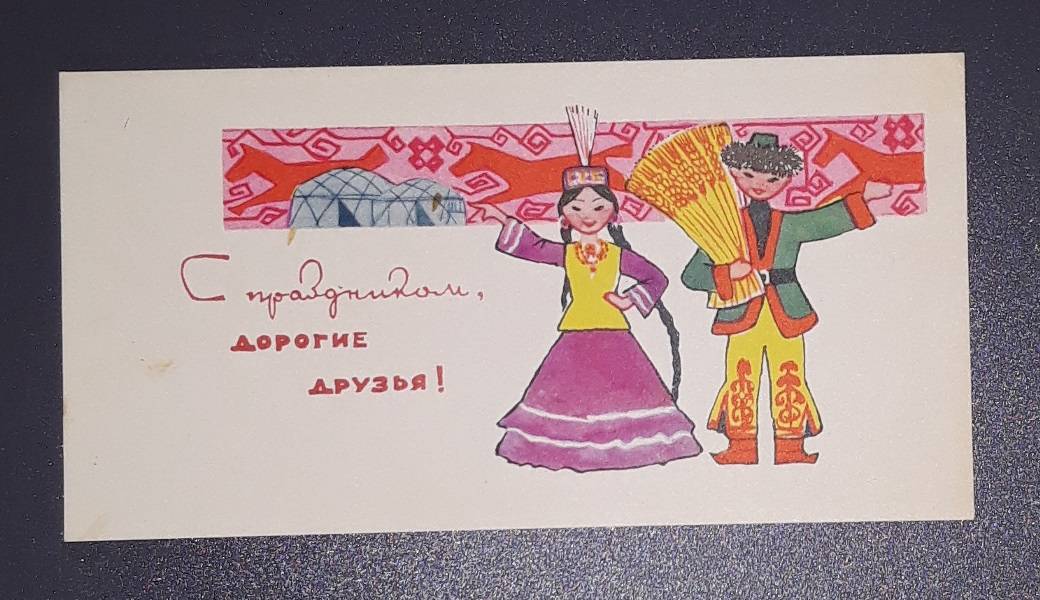 С праздником,
ДОРОГИЕ
ДРУЗЬЯ!